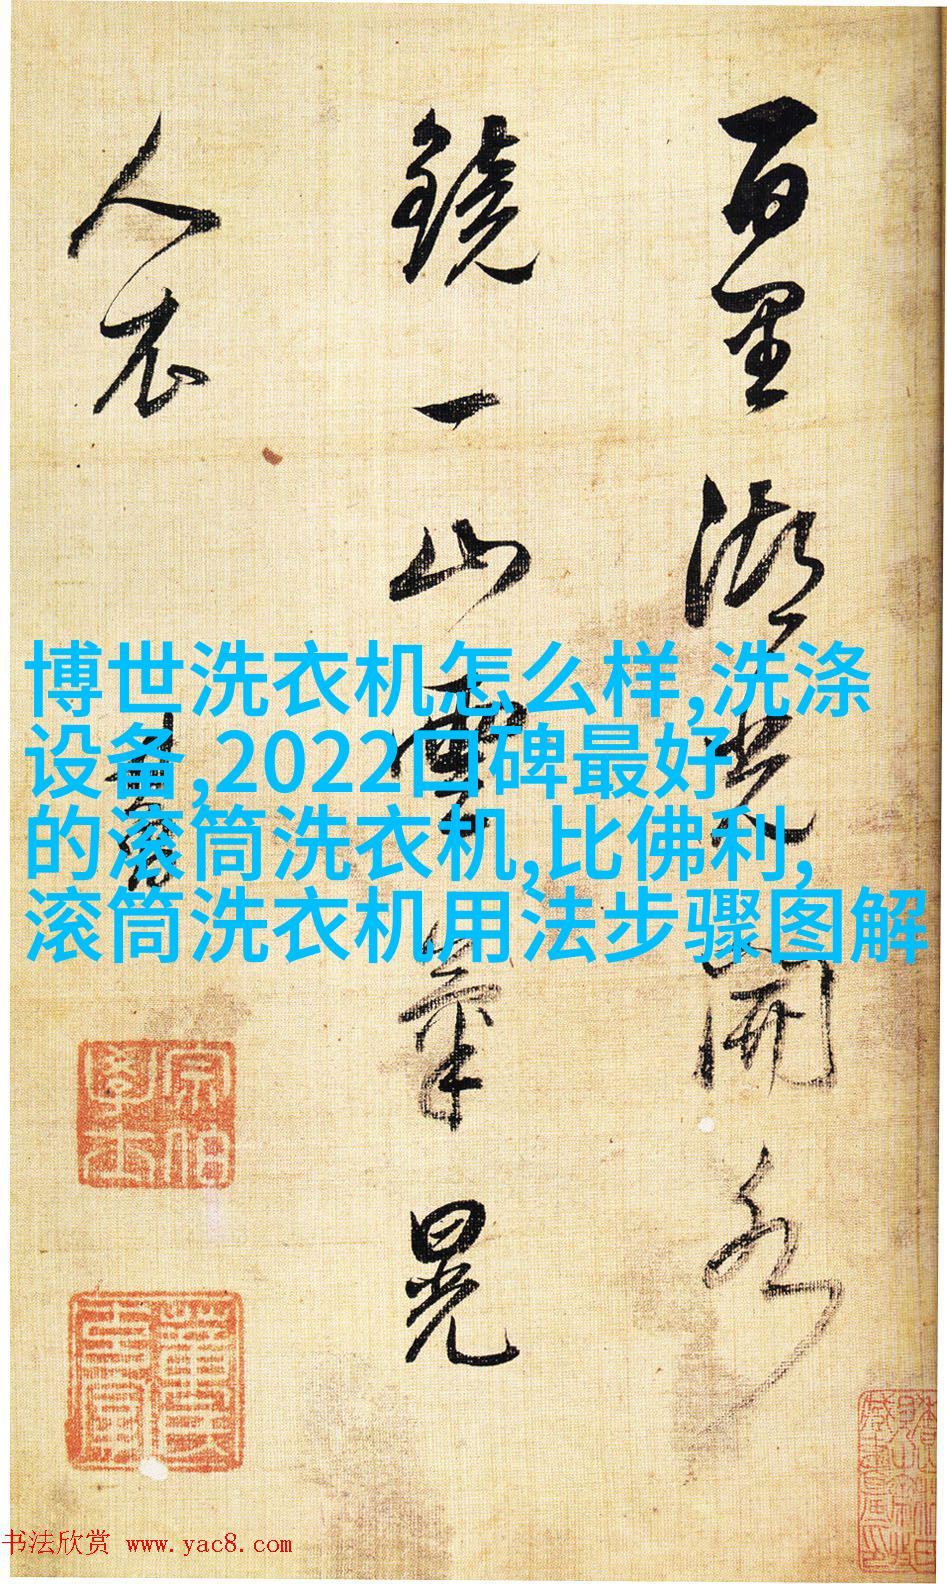 百里湖光開水
鏡一山雲氣晃
人衣
博世洗衣机怎么样,洗涤
设备,2022口碑最好
的滚筒洗衣机,比佛利,
滚筒洗衣机用法步骤图解
宗伯學士
书法欣赏 www.yac8.com